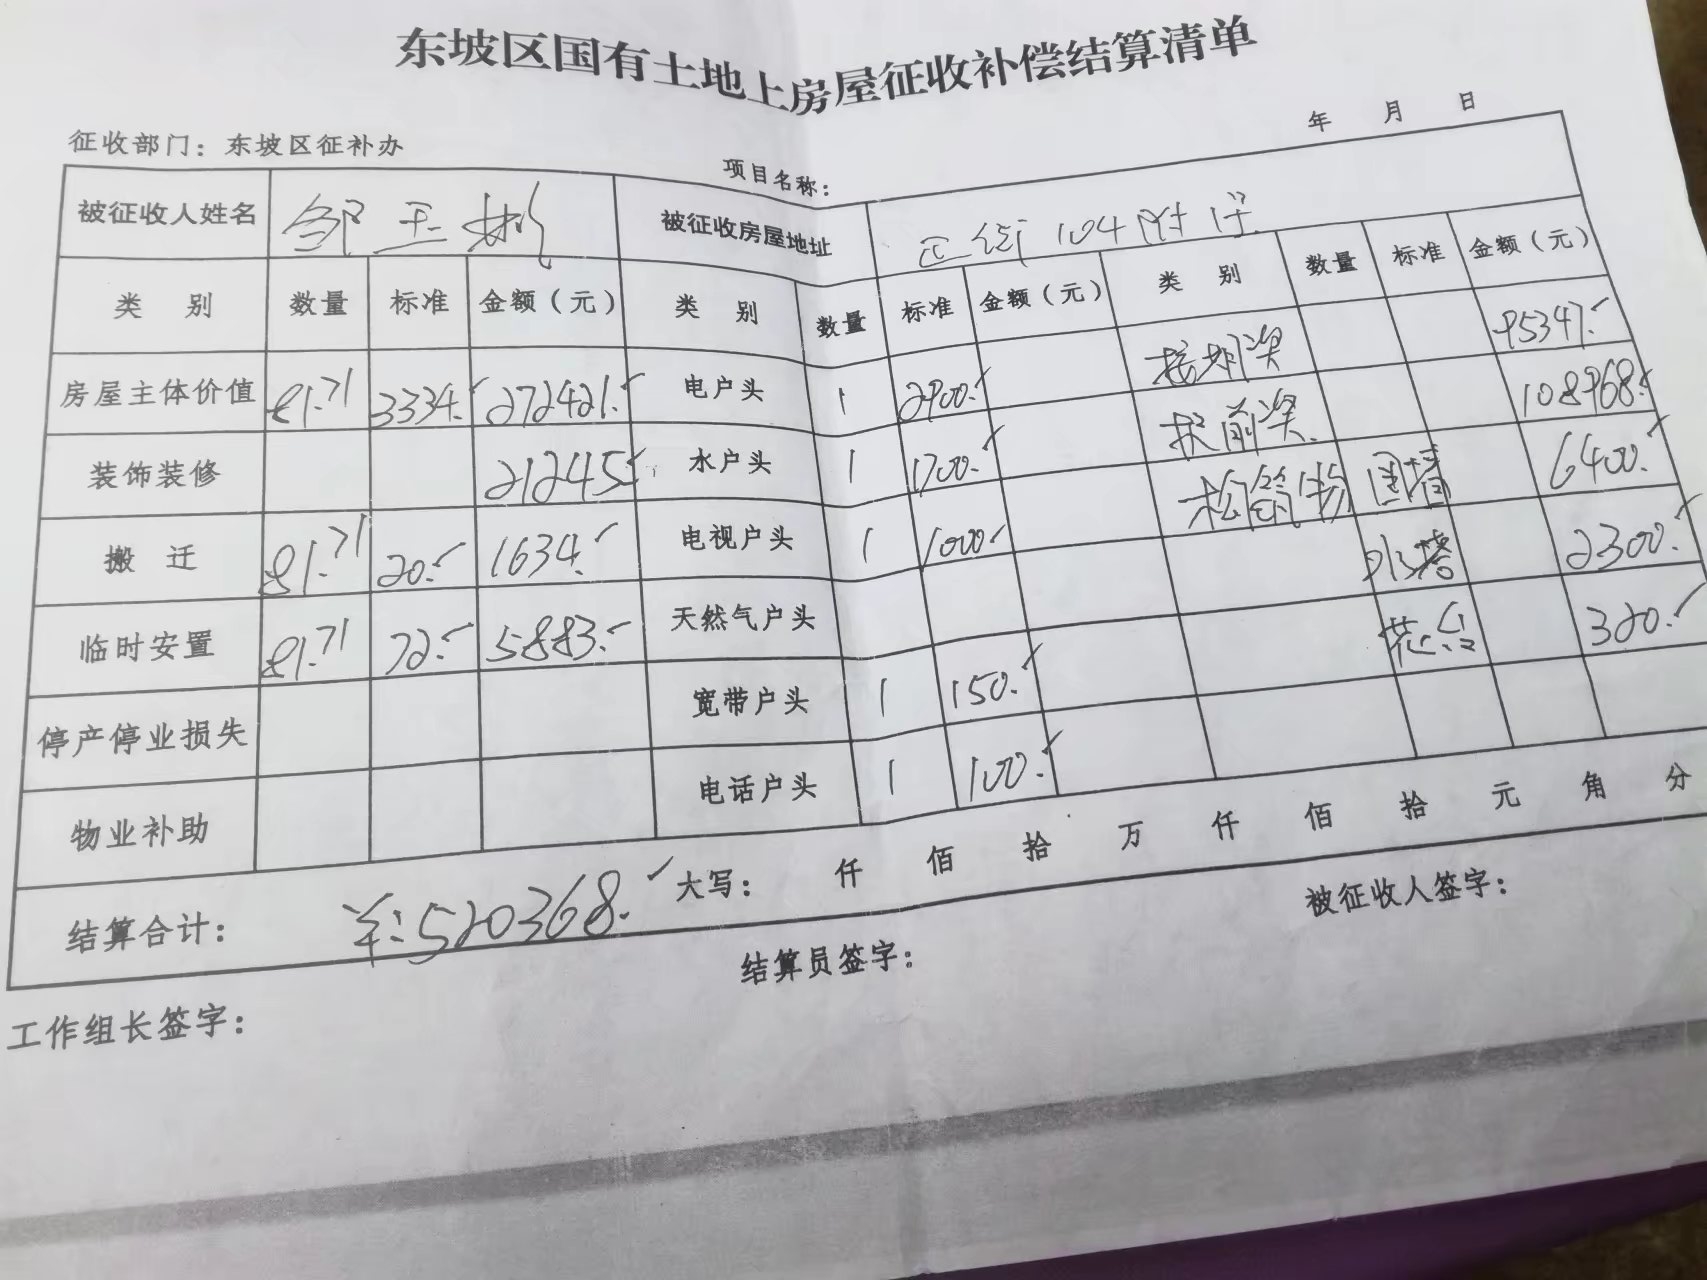 东坡区国有土地上房屋征收补偿结算清单
年 月 日
征收部门：东坡区征补办 项目名称：
被征收人姓名 邹玉 被征收房屋地址 正街104附1号
类 别 数量 标准 金额（元） 类 别 数量 标准 金额（元） 类 别 数量 标准 金额（元）
房屋主体价值 81.71 3334. 272421. 电户头 1 2900. 按期奖 95347.
装饰装修 21245 水户头 1 1700. 提前奖 108968.
搬 迁 81.71 20. 1634. 电视户头 1 1000. 构筑物 围墙 6400.
临时安置 81.71 72. 5883. 天然气户头 水塔 2300.
停产停业损失 宽带户头 1 150. 花台 320.
物业补助 电话户头 1 100.
结算合计： ¥:520368. 大写： 仟 佰 拾 万 仟 佰 拾 元 角 分
工作组长签字： 结算员签字： 被征收人签字：